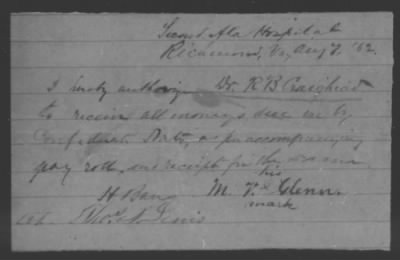 Second Ala Hospital
Richmond, Va, Aug 7, '62.
I hereby authorize Dr. R B Craighead
to receive all moneys due me by
Confederate States, as per accompanying
pay roll, and receipt for the same
his
M. T. x Glenn
mark
H Ban